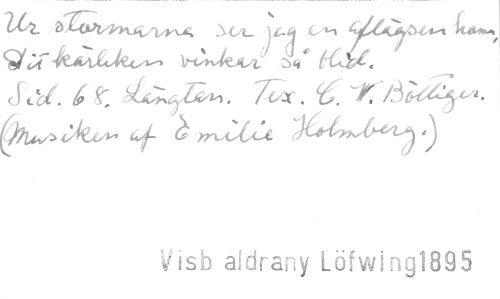 Ur stormarna ser jag en aflägsen hamn,
Dit kärleken vinkar så blid.
Sid. 68. Längtan. Tex. C. V. Böttiger.
(Musiken af Emilie Holmberg.)
Visb aldrany Löfwing1895